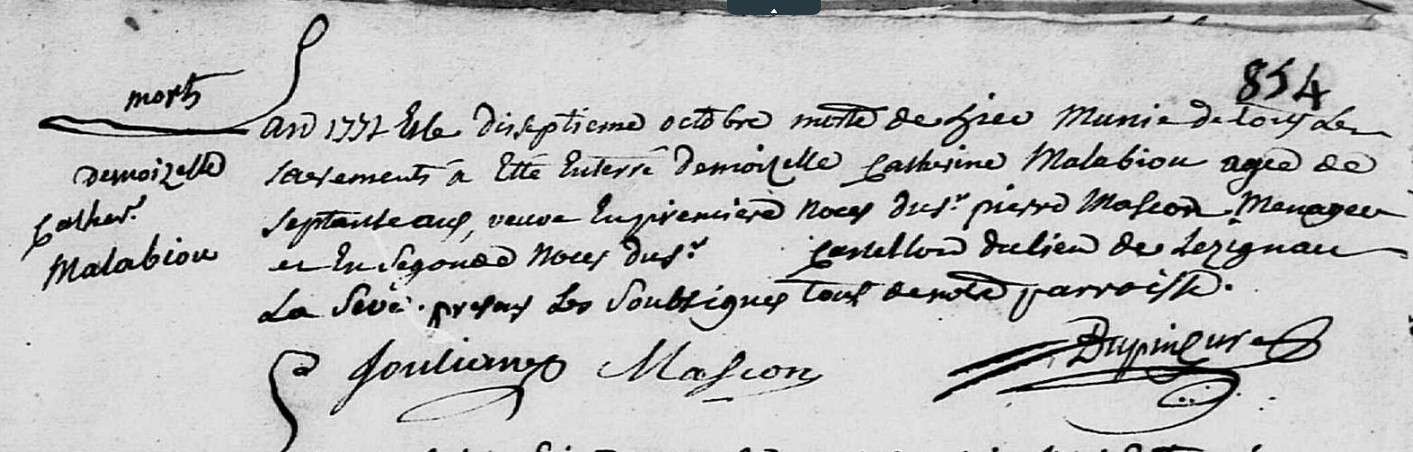 854
mort
demoizelle
Cather.e
Malabiou
an 1737 Et le disseptieme octobre morte de hier Munie de tous Les
sacrements a Ette Enterré demoizelle Catherine Malabiou agée de
septante ans, veuve En premiere Noces du sr. pierre Mascon Menager
et En Segonde Noces du sr. Castellon du lieu de Lezignan
La Seve. presans Les Soubsignes tous de notre parroisse.
Joulian Mascon